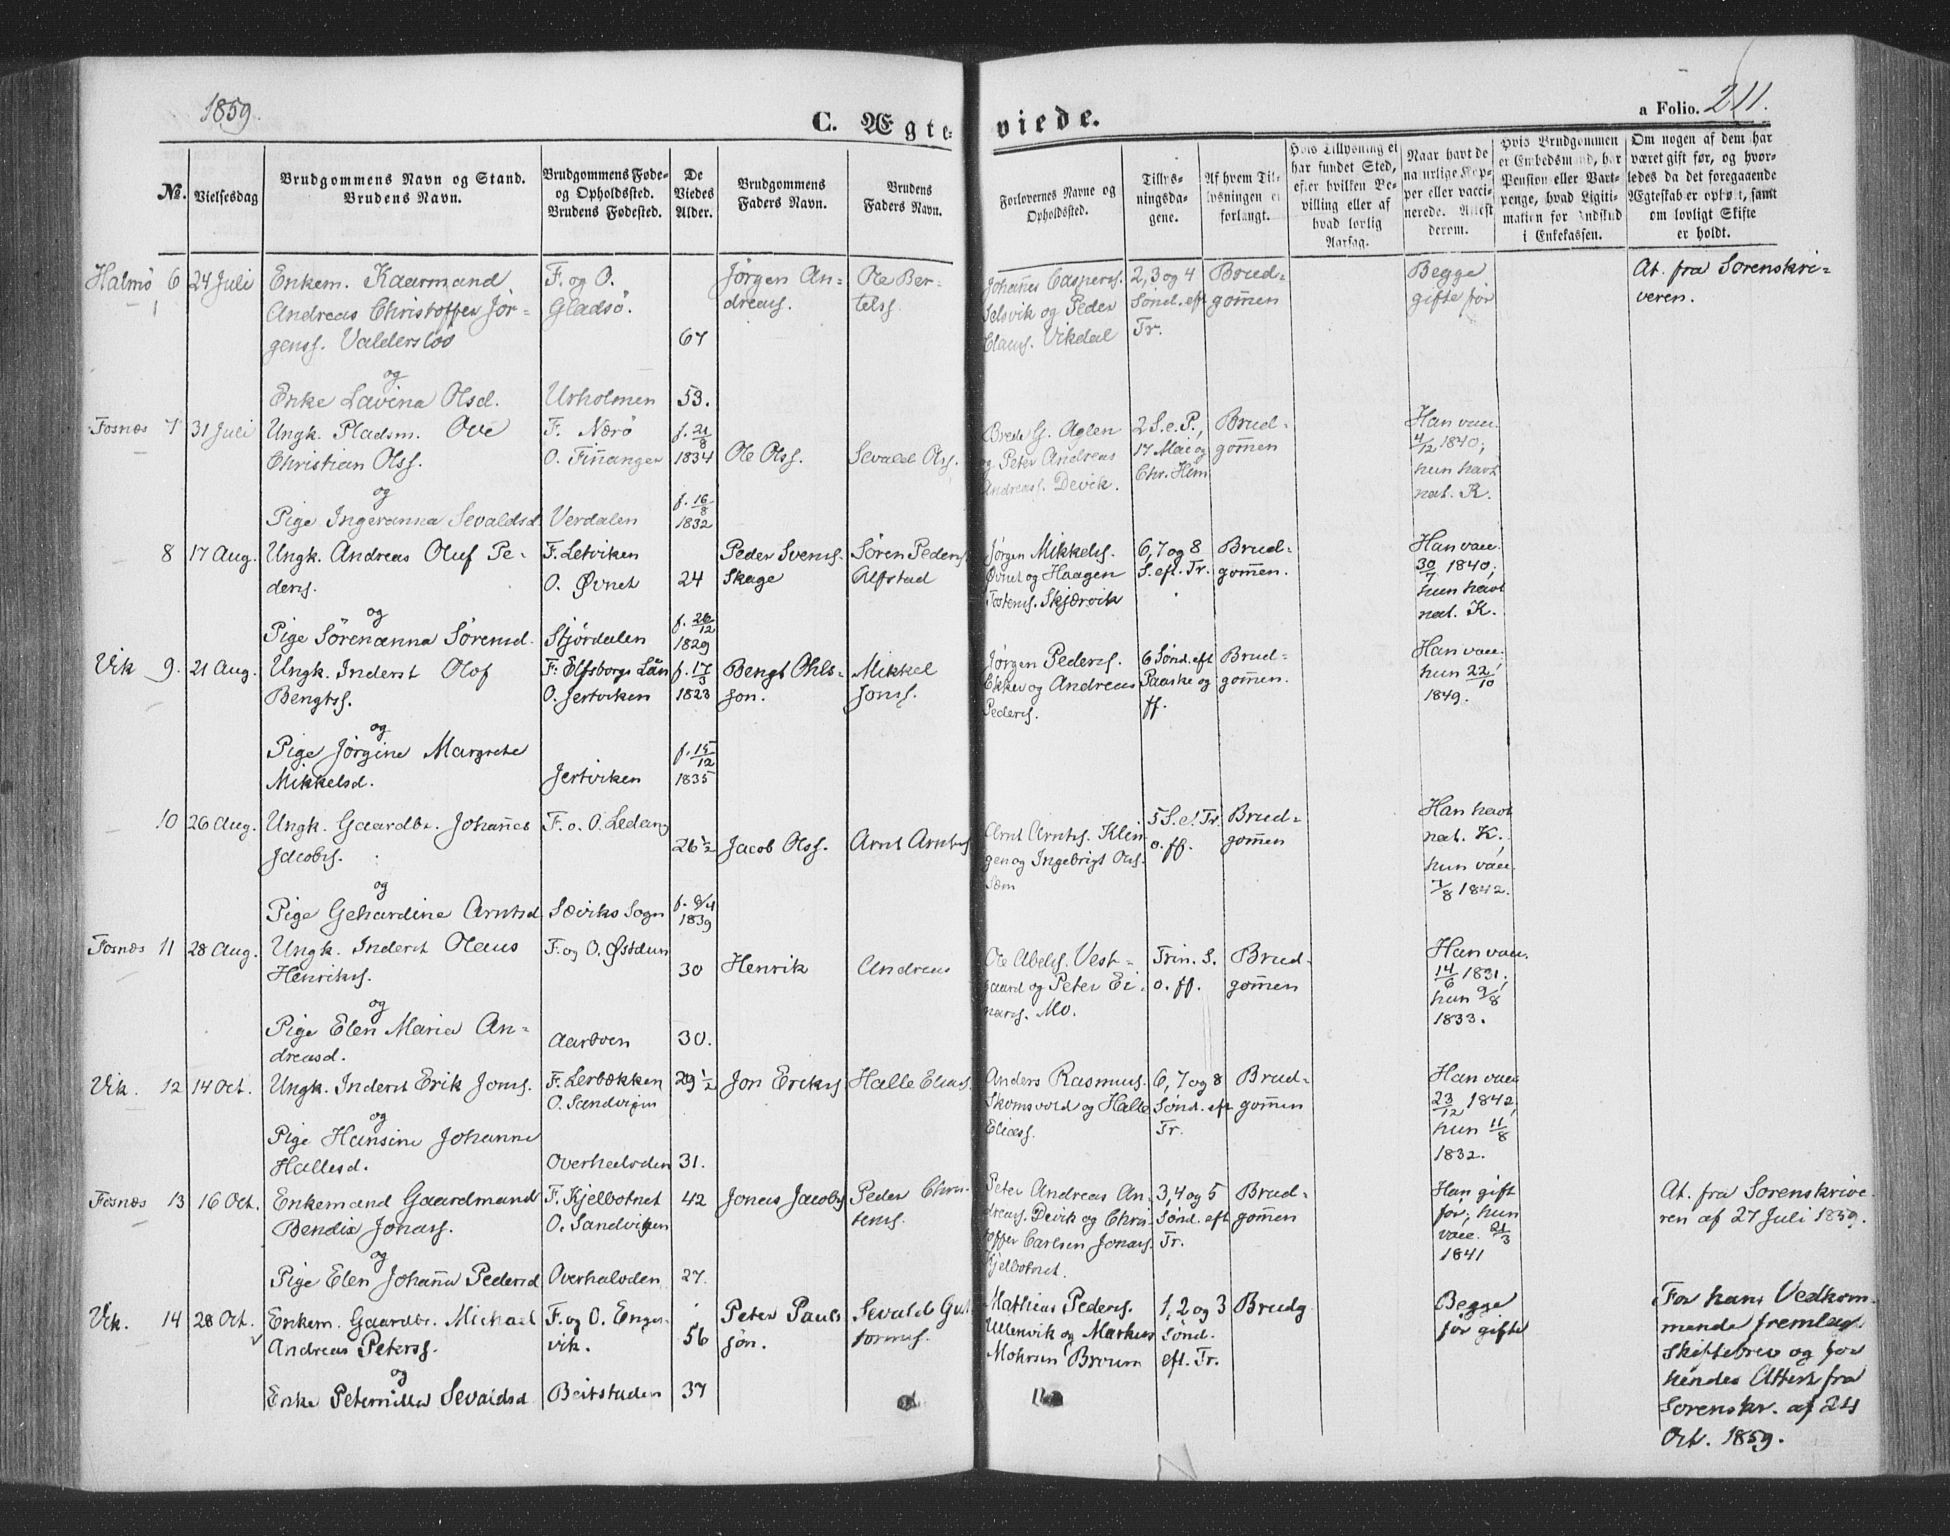 1859.
C. Ægte-
viede.
a Folio. 211.
No.
Vielsesdag
Brudgommens Navn og Stand.
Brudens Navn.
Brudgommens Føde-
og Opholdssted.
Brudens Fødested.
De
Viedes
Alder.
Brudgommens
Faders Navn.
Brudens
Faders Navn.
Forlovernes Navne og
Opholdssted.
Tillys-
ningsda-
gene.
Af hvem Til-
lysningen er
forlangt.
Hvis Tillysning ei
har fundet Sted,
efter hvilken Be-
villing eller af
hvad lovlig
Aarsag.
Naar havt de
naturlige Kop-
per eller vacci-
nerede. Attest
derom.
Hvis Brudgommen
er Embedsmand, har
Pension eller Vart-
penge, hvad Ligiti-
mation for Indskud
i Enkekassen.
Om nogen af dem har
været gift før, og hvor-
ledes da det foregaaende
Ægteskab er ophørt, samt
om lovligt Skifte
er holdt.
Halmø 6 24 Juli
Enkem. Kaarmand
Andreas Christoffer Jør-
genss. Valdersloo
og
Enke Lavina Olsd.
F. og O.
Gladsö.
Urholmen
67
53.
Jørgen An-
dreass.
Ole Ber-
telss.
Johañes Caspers.
Selsvik og Peder
Clauss. Vikdal
2, 3 og 4
Sønd. eft
Tr.
Brud-
gom̄en
Begge
gifte før
At. fra Sorenskri-
veren.
Fosnæs 7 31 Juli
Ungk. Pladsm. Ove
Christian Olss.
og
Pige Ingeranna Sevaldsd.
F. Nærö
O. Fiñanger
Verdalen
f. 21/8
1834
f. 16/8
1832
Ole Olss.
Sevald Ols.
Brede G. Aglen
og Peter Andreas
Andreass. Devik.
2 S. e. P.,
17 Mai og
Chr. Him
Brud-
gom̄en
Han vacc.
4/12 1840;
hun havt
nat. K.
8 17 Aug.
Ungk. Andreas Oluf Pe-
ders.
og
Pige Sörenanna Sörensd.
F. Letviken
O. Øvnet
Stjördalen
24
f. 26/12
1829
Peder Svens.
Skage
Sören Peders.
Alfstad
Jørgen Mikkels.
Øvnet og Haagen
Tostens. Skjærvik
6, 7 og 8
S. eft. Tr.
Brud-
gom̄en.
Han vacc.
30/7 1840;
hun havt
nat. K.
Vik 9. 21 Aug.
Ungk. Inderst Olof
Bengtss.
og
Pige Jörgine Margrete
Mikkelsd.
F. Elfsborgs Län
O. Jertviken
Jertviken
f. 17/3
1823
f. 15/12
1835
Bengt Ohls-
son.
Mikkel
Jons.
Jørgen Peders.
Ekker og Andreas
Peders.
6 Sönd. eft
Paaske og
ff.
Brud-
gom̄en.
Han vacc.
hun 22/10
1849.
10 26 Aug.
Ungk. Gaardbr. Johañes
Jacobs.
og
Pige Gehardine Arntsd
F. o. O. Ledang
Sæviks Sogn
26 1/2
f. 9/4
1839
Jacob Olss.
Arnt Arntss
Arnt Arnts. Klin
gen og Ingebrigt Ols.
Sæm
5 S. e. Tr.
o. ff.
Brud-
gom̄en
Han havt
nat. K,
hun vacc.
7/8 1842.
Fosnæs 11 28 Aug.
Ungk. Inderst Olaus
Henriks.
og
Pige Elen Maria An-
dreasd.
F. og O. Østdun
Aarboen
30
30.
Henrik
Andreas
Ole Abels. Vest-
gaard og Peter Ei-
nars. Mo.
Trin. S.
o. ff.
Brud-
gom̄en
Han vacc.
14/6 1831,
hun 9/8
1833.
Vik. 12 14 Oct.
Ungk. Inderst Erik Jons.
og
Pige Hansine Johanne
Hallesd.
F. Lerbækken
O. Sandvigen
Overhalvden
29 1/2
31.
Jon Eriks
Halle Elias
Anders Rasmus.
Skomsvold og Halle
Eliass.
6, 7 og 8
Sønd. eft
Tr.
Brud-
gom̄en
Han vacc
23/12 1842,
hun 11/8
1832.
Fosnæs 13 16 Oct.
Enkemand Gaardmand
Bendix Jonass.
og
Pige Elen Johaña Pedersd
F. Kjelbotnet
O. Sandviken
Overhalvden
42
27.
Jonas Jacobs
Peder Chri-
stens.
Peter Andreas An-
dreass. Devik og Chri-
stoffer Carlsen Jonas.
Kjelbotnet.
3, 4 og 5
Sønd. eft
Tr.
Brud-
gom̄en
Han gift
før, hun
vacc. 21/3
1841
At. fra Sorenskrive-
ren af 27 Juli 1859.
Vik. 14 28 Oct.
Enkem. Gaardbr. Michael
Andreas Peterss.
og
Enke Peternilla Sevaldsd
F. og O. Enges-
vik.
Beitstaden
56
37
Peter Pauls
søn.
Sevald Gut
torms.
Mathias Peders.
Ullenvik og Markus
Mohrsen Broum
1, 2 og 3
Sønd.
eft. Tr.
Brudg
Begge
før gifte
For hans Vedkom-
mende fremlagt
Skiftebrev og for
hendes Attest fra
Sorenskr. af 24
Oct. 1859.